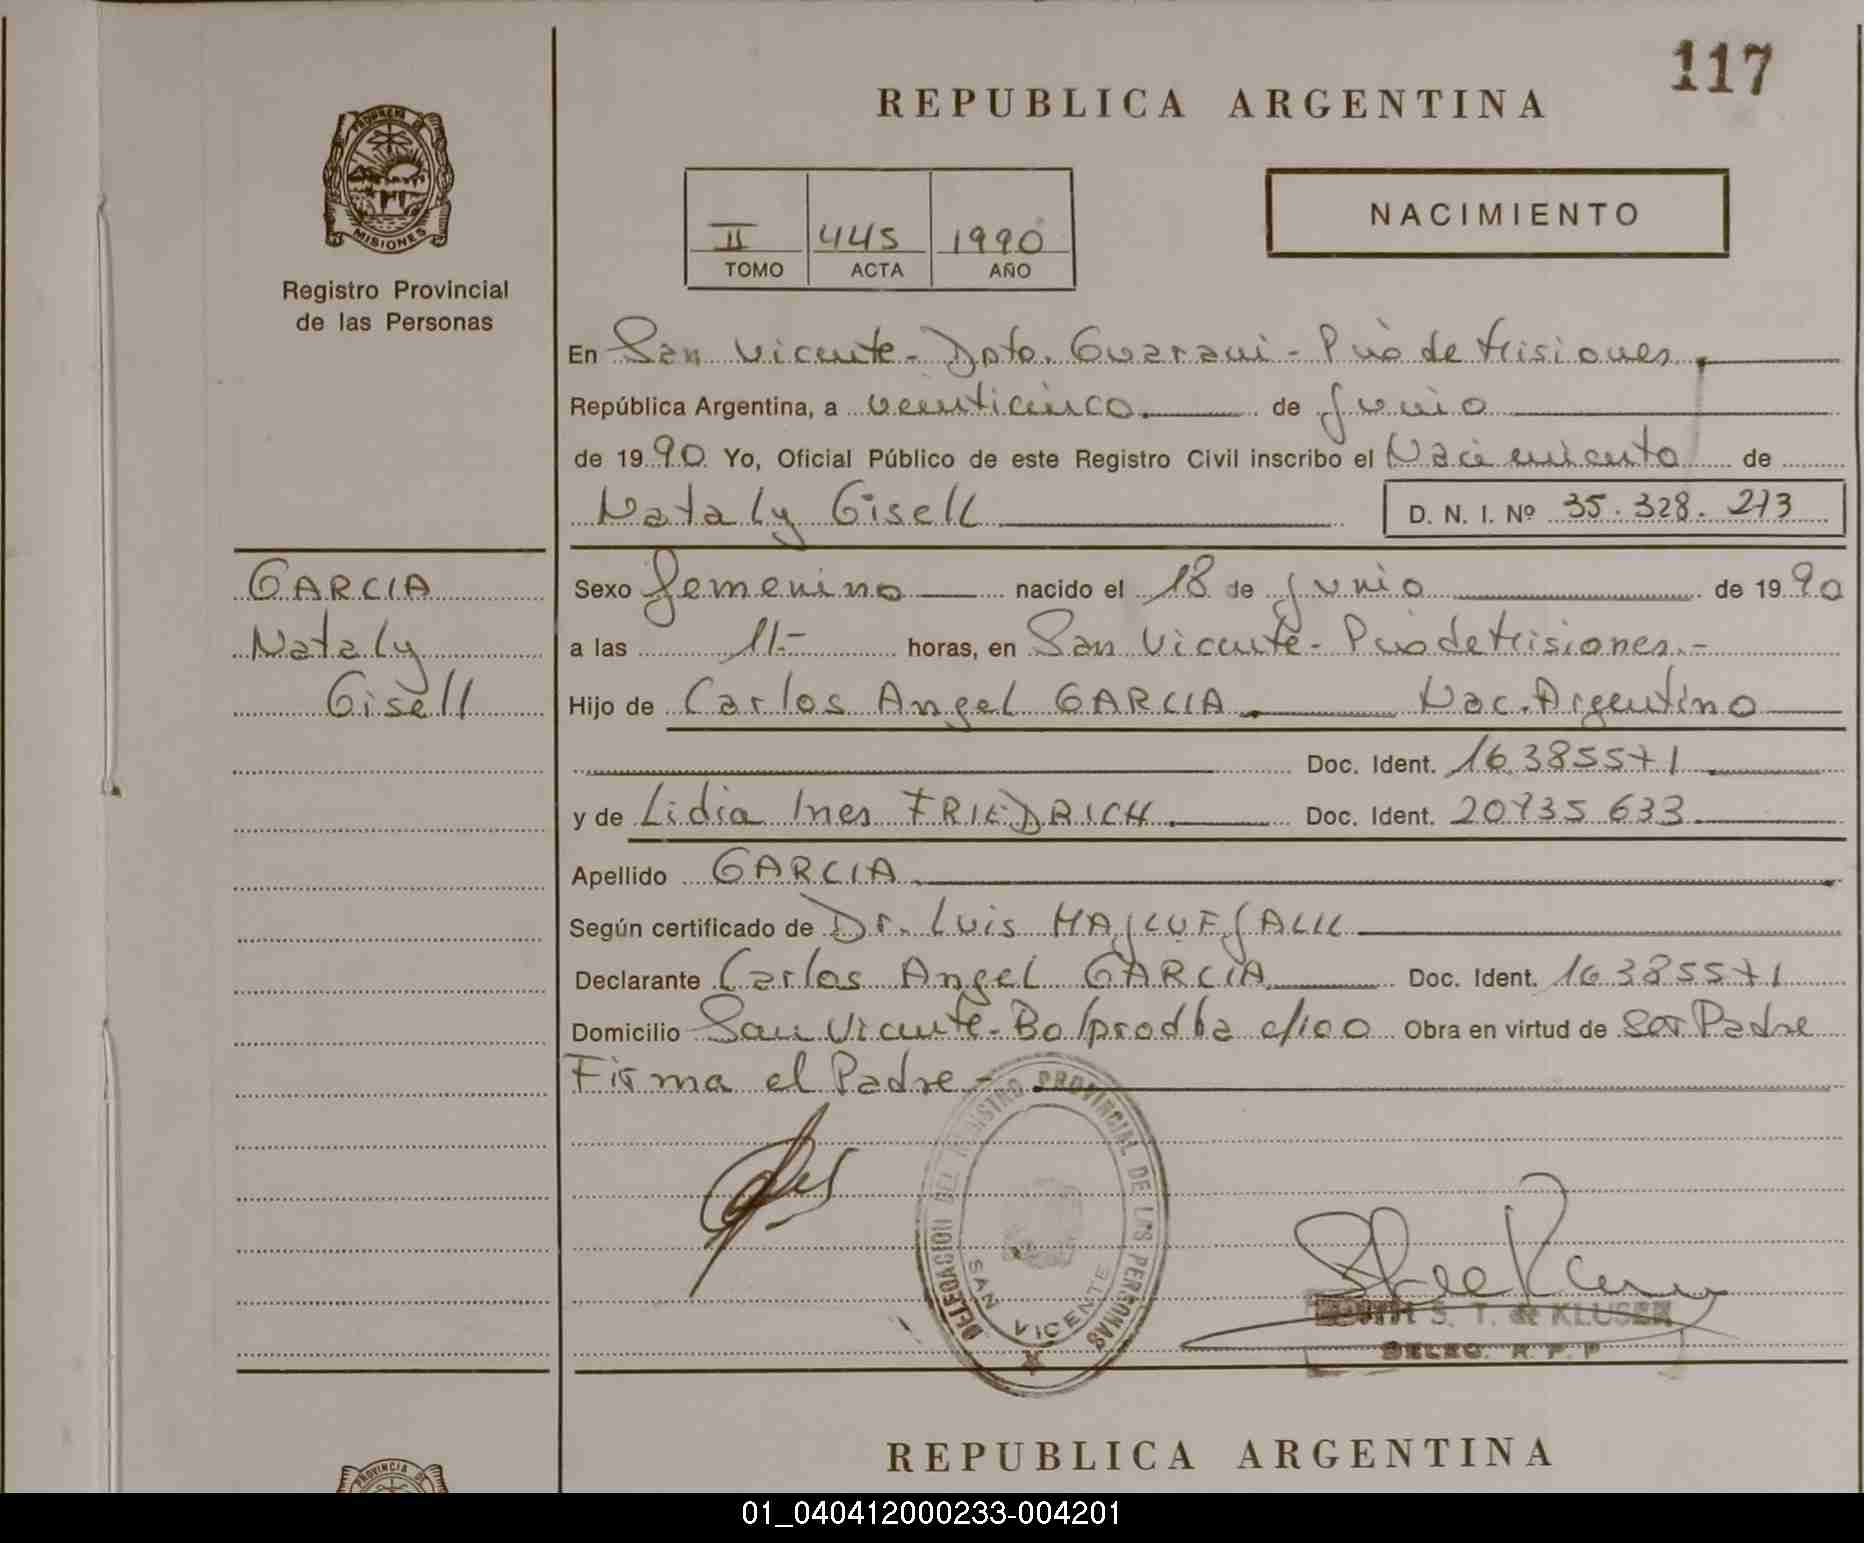 117
REPUBLICA ARGENTINA
PROVINCIA DE
MISIONES
Registro Provincial
de las Personas
II 445 1990
TOMO ACTA AÑO
NACIMIENTO
En San Vicente - Dpto. Guarani - Pcia de Misiones
República Argentina, a veinticinco de Junio
de 1990 Yo, Oficial Público de este Registro Civil inscribo el Nacimiento de
Nataly Gisell D. N. I. Nº 35.328.273
GARCIA
Nataly
Gisell
Sexo Femenino nacido el 18 de Junio de 1990
a las 11.- horas, en San Vicente - Pcia de Misiones.-
Hijo de Carlos Angel GARCIA Nac. Argentino
Doc. Ident. 16385571
y de Lidia Ines FRIEDRICH Doc. Ident. 20735633
Apellido GARCIA
Según certificado de Dr. Luis MAJLUF JALIL
Declarante Carlos Angel GARCIA Doc. Ident. 16385571
Domicilio San Vicente - Bo c/100 Obra en virtud de ser Padre
Firma el Padre -
DELEGACION DEL REGISTRO PROVINCIAL DE LAS PERSONAS
SAN VICENTE
S. T. de KLUSEN
DELEG. R. P. P
REPUBLICA ARGENTINA
PROVINCIA DE
01_040412000233-004201